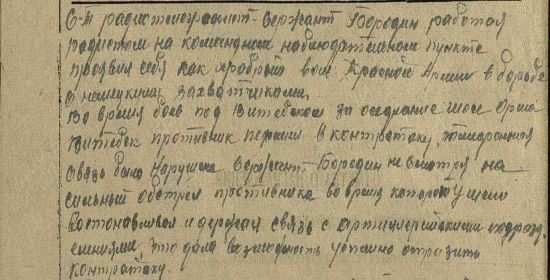 С-т радиотелеграфист-сержант Бородин работая
радистом на командном наблюдательном пункте
проявил себя как храбрый воин Красной Армии в борьбе
с немецкими захватчиками.
во время боев под Витебском за оседлание шоссе Орша
Витебск противник перешел в контратаку,
связь была нарушена сержант Бородин не смотря на
сильный обстрел противника во время которого умело
востонавливал и держал связь с артиллерийскими подразд.
елениями, что дало возможность успешно отразить
контратаку.